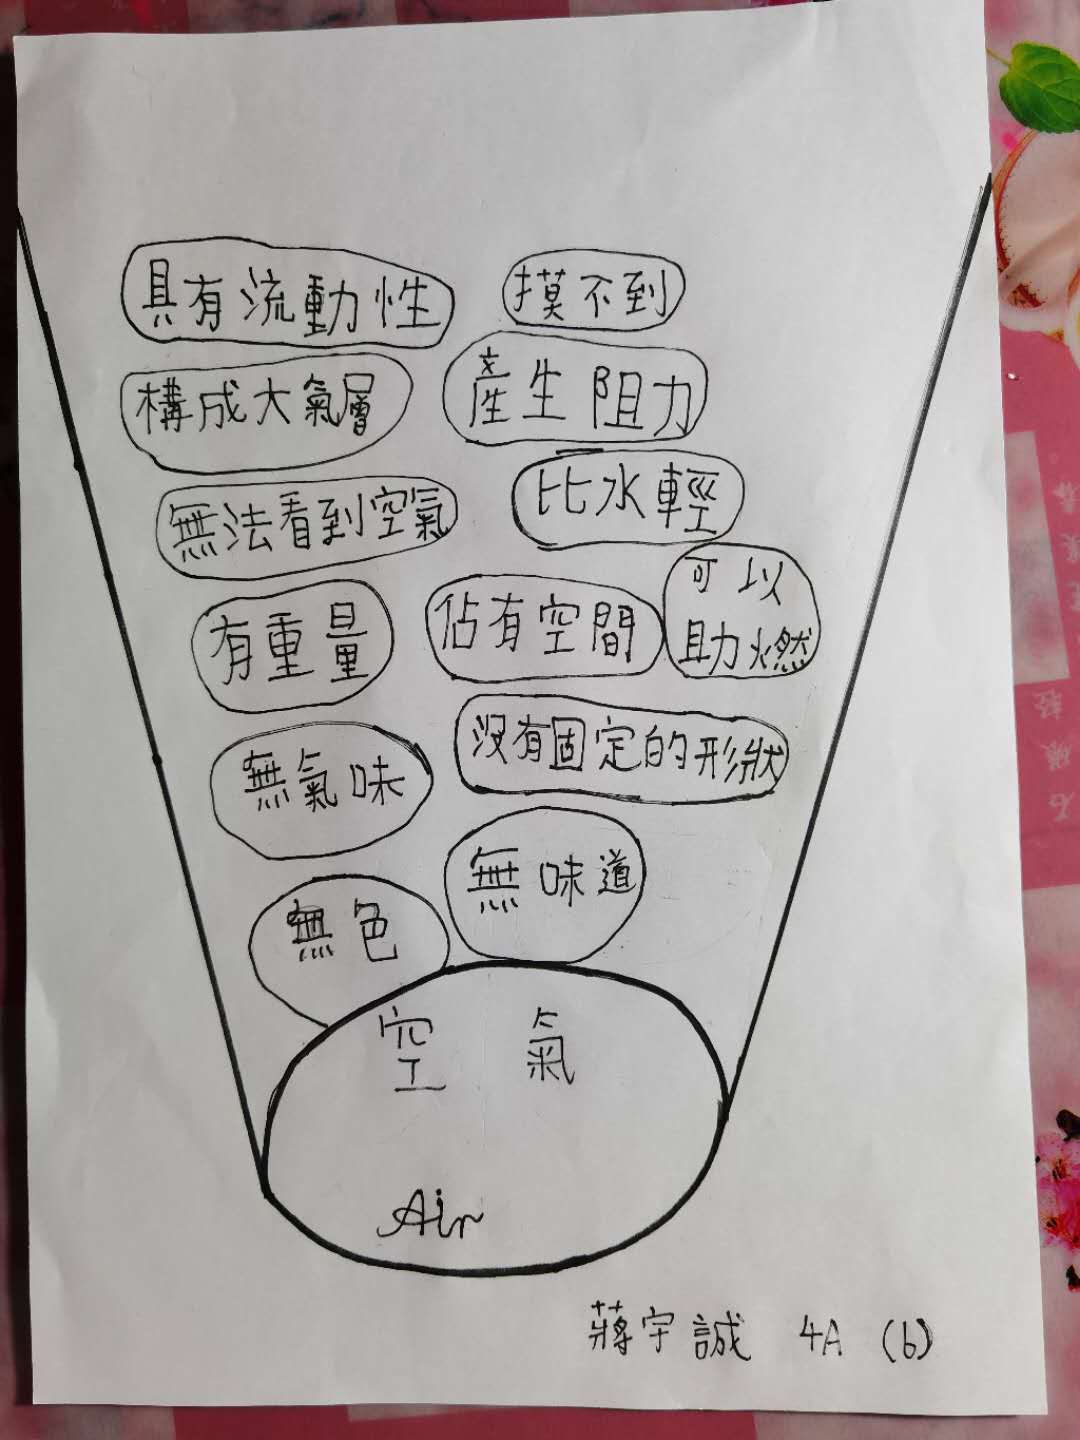 具有流動性
摸不到
構成大氣層
產生阻力
無法看到空氣
比水輕
有重量
佔有空間
可以
助燃
無氣味
沒有固定的形狀
無味道
無色
空氣
Air
蔣宇誠 4A (6)